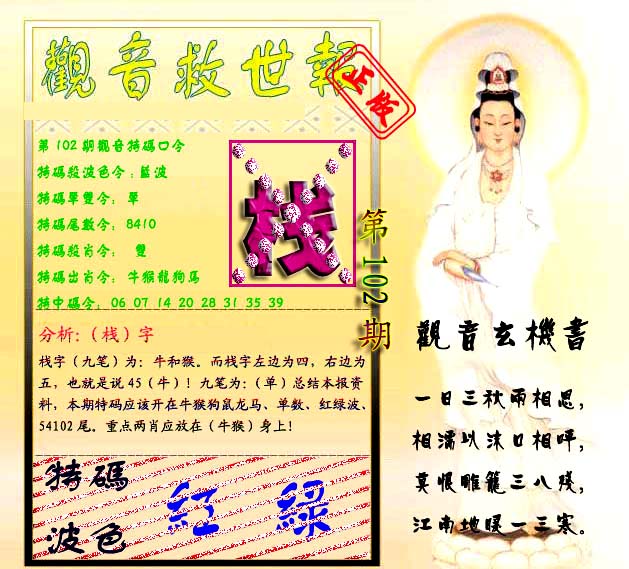 觀音救世報
正傳
第102期觀音特碼口令
特碼殺波色令:藍波
特碼單雙令: 單
特碼尾數令: 8410
特碼殺肖令: 雙
特碼出肖令: 牛猴龍狗馬
特中碼令: 06 07 14 20 28 31 35 39
栈
第102期
分析:(栈)字
栈字(九笔)为:牛和猴。而栈字左边为四,右边为
五,也就是说45(牛)!九笔为:(单)总结本报资
料,本期特码应该开在牛猴狗鼠龙马、单数、红绿波、
54102尾。重点两肖应放在(牛猴)身上!
特碼
波色
紅 綠
觀音玄機書
一日三秋兩相思,
相濡以沫口相呼,
莫恨雕籠三八殘,
江南地暖一三寒。